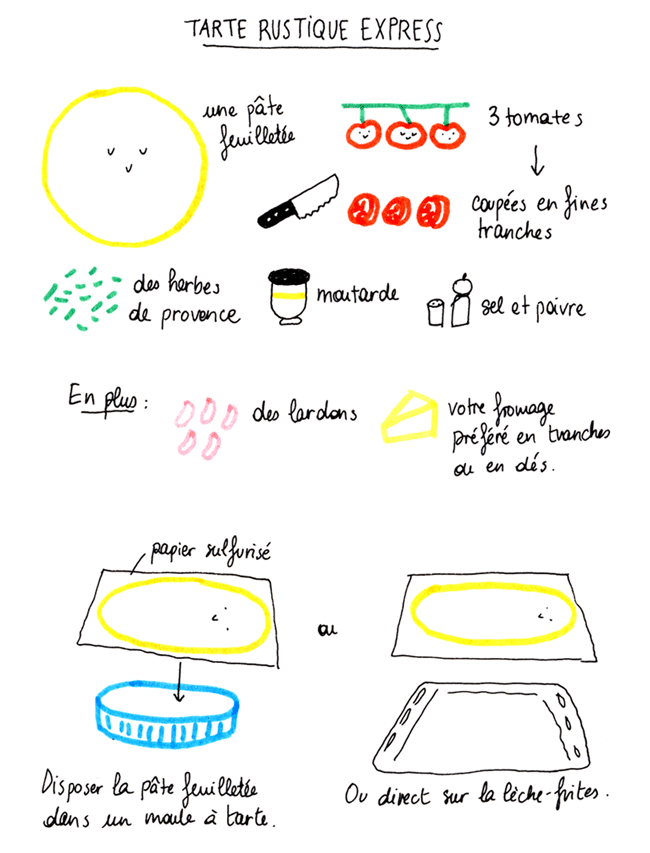 TARTE RUSTIQUE EXPRESS
une pâte
feuilletée
3 tomates
coupées en fines
tranches
des herbes
de provence
moutarde
sel et poivre
En plus :
des lardons
votre fromage
préféré en tranches
ou en dés.
papier sulfurisé
ou
Disposer la pâte feuilletée
dans un moule à tarte.
Ou direct sur la lèche-frites.